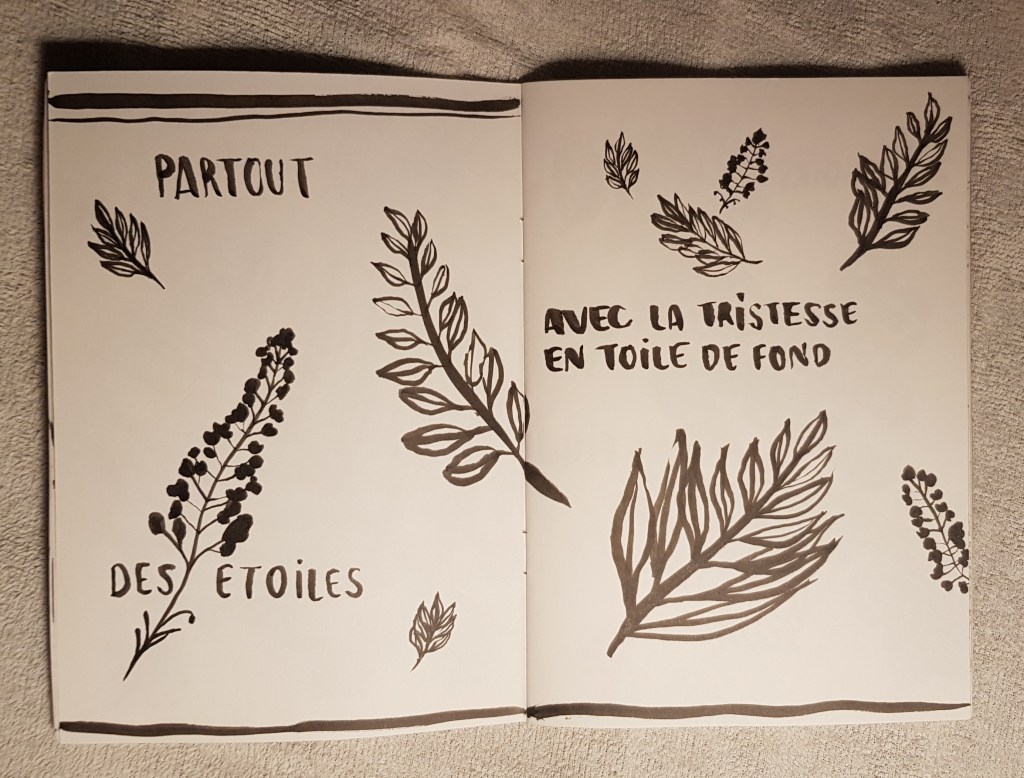 PARTOUT
DES ETOILES
AVEC LA TRISTESSE
EN TOILE DE FOND